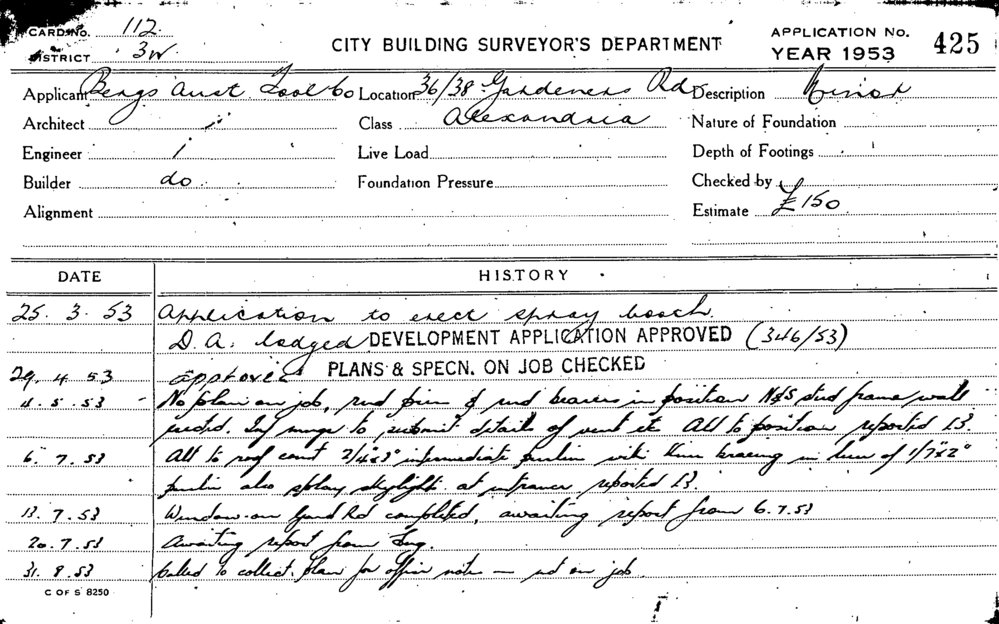 CARD No. 112
DISTRICT 3W.
CITY BUILDING SURVEYOR'S DEPARTMENT
APPLICATION No.
YEAR 1953 425
Applicant Bergs Aust. Tool Co Location 36/38 Gardeners Rd Description Minor
Architect Class Alexandria Nature of Foundation
Engineer Live Load Depth of Footings
Builder do Foundation Pressure Checked by
Alignment Estimate £150
DATE HISTORY
25. 3. 53 Application to erect spray booth.
D.A. lodged DEVELOPMENT APPLICATION APPROVED (346/53)
29. 4. 53 approved PLANS & SPECN. ON JOB CHECKED
4. 5. 53 No plan on job, and bearers in position N&S stud frame wall
to submit details of vent etc Alt to position reported 13.
6. 7. 53 Alt to roof const 2/4"x3" intermediate purlin with bracing in lieu of 1/7"x2"
purlin also splay skylight at entrance reported 13.
13. 7. 53 Window on Gard Rd completed, awaiting report from 6.7.53
20. 7. 53 Awaiting report from Eng.
31. 8. 53 Called to collect plan for office note – not on job.
C OF S 8250